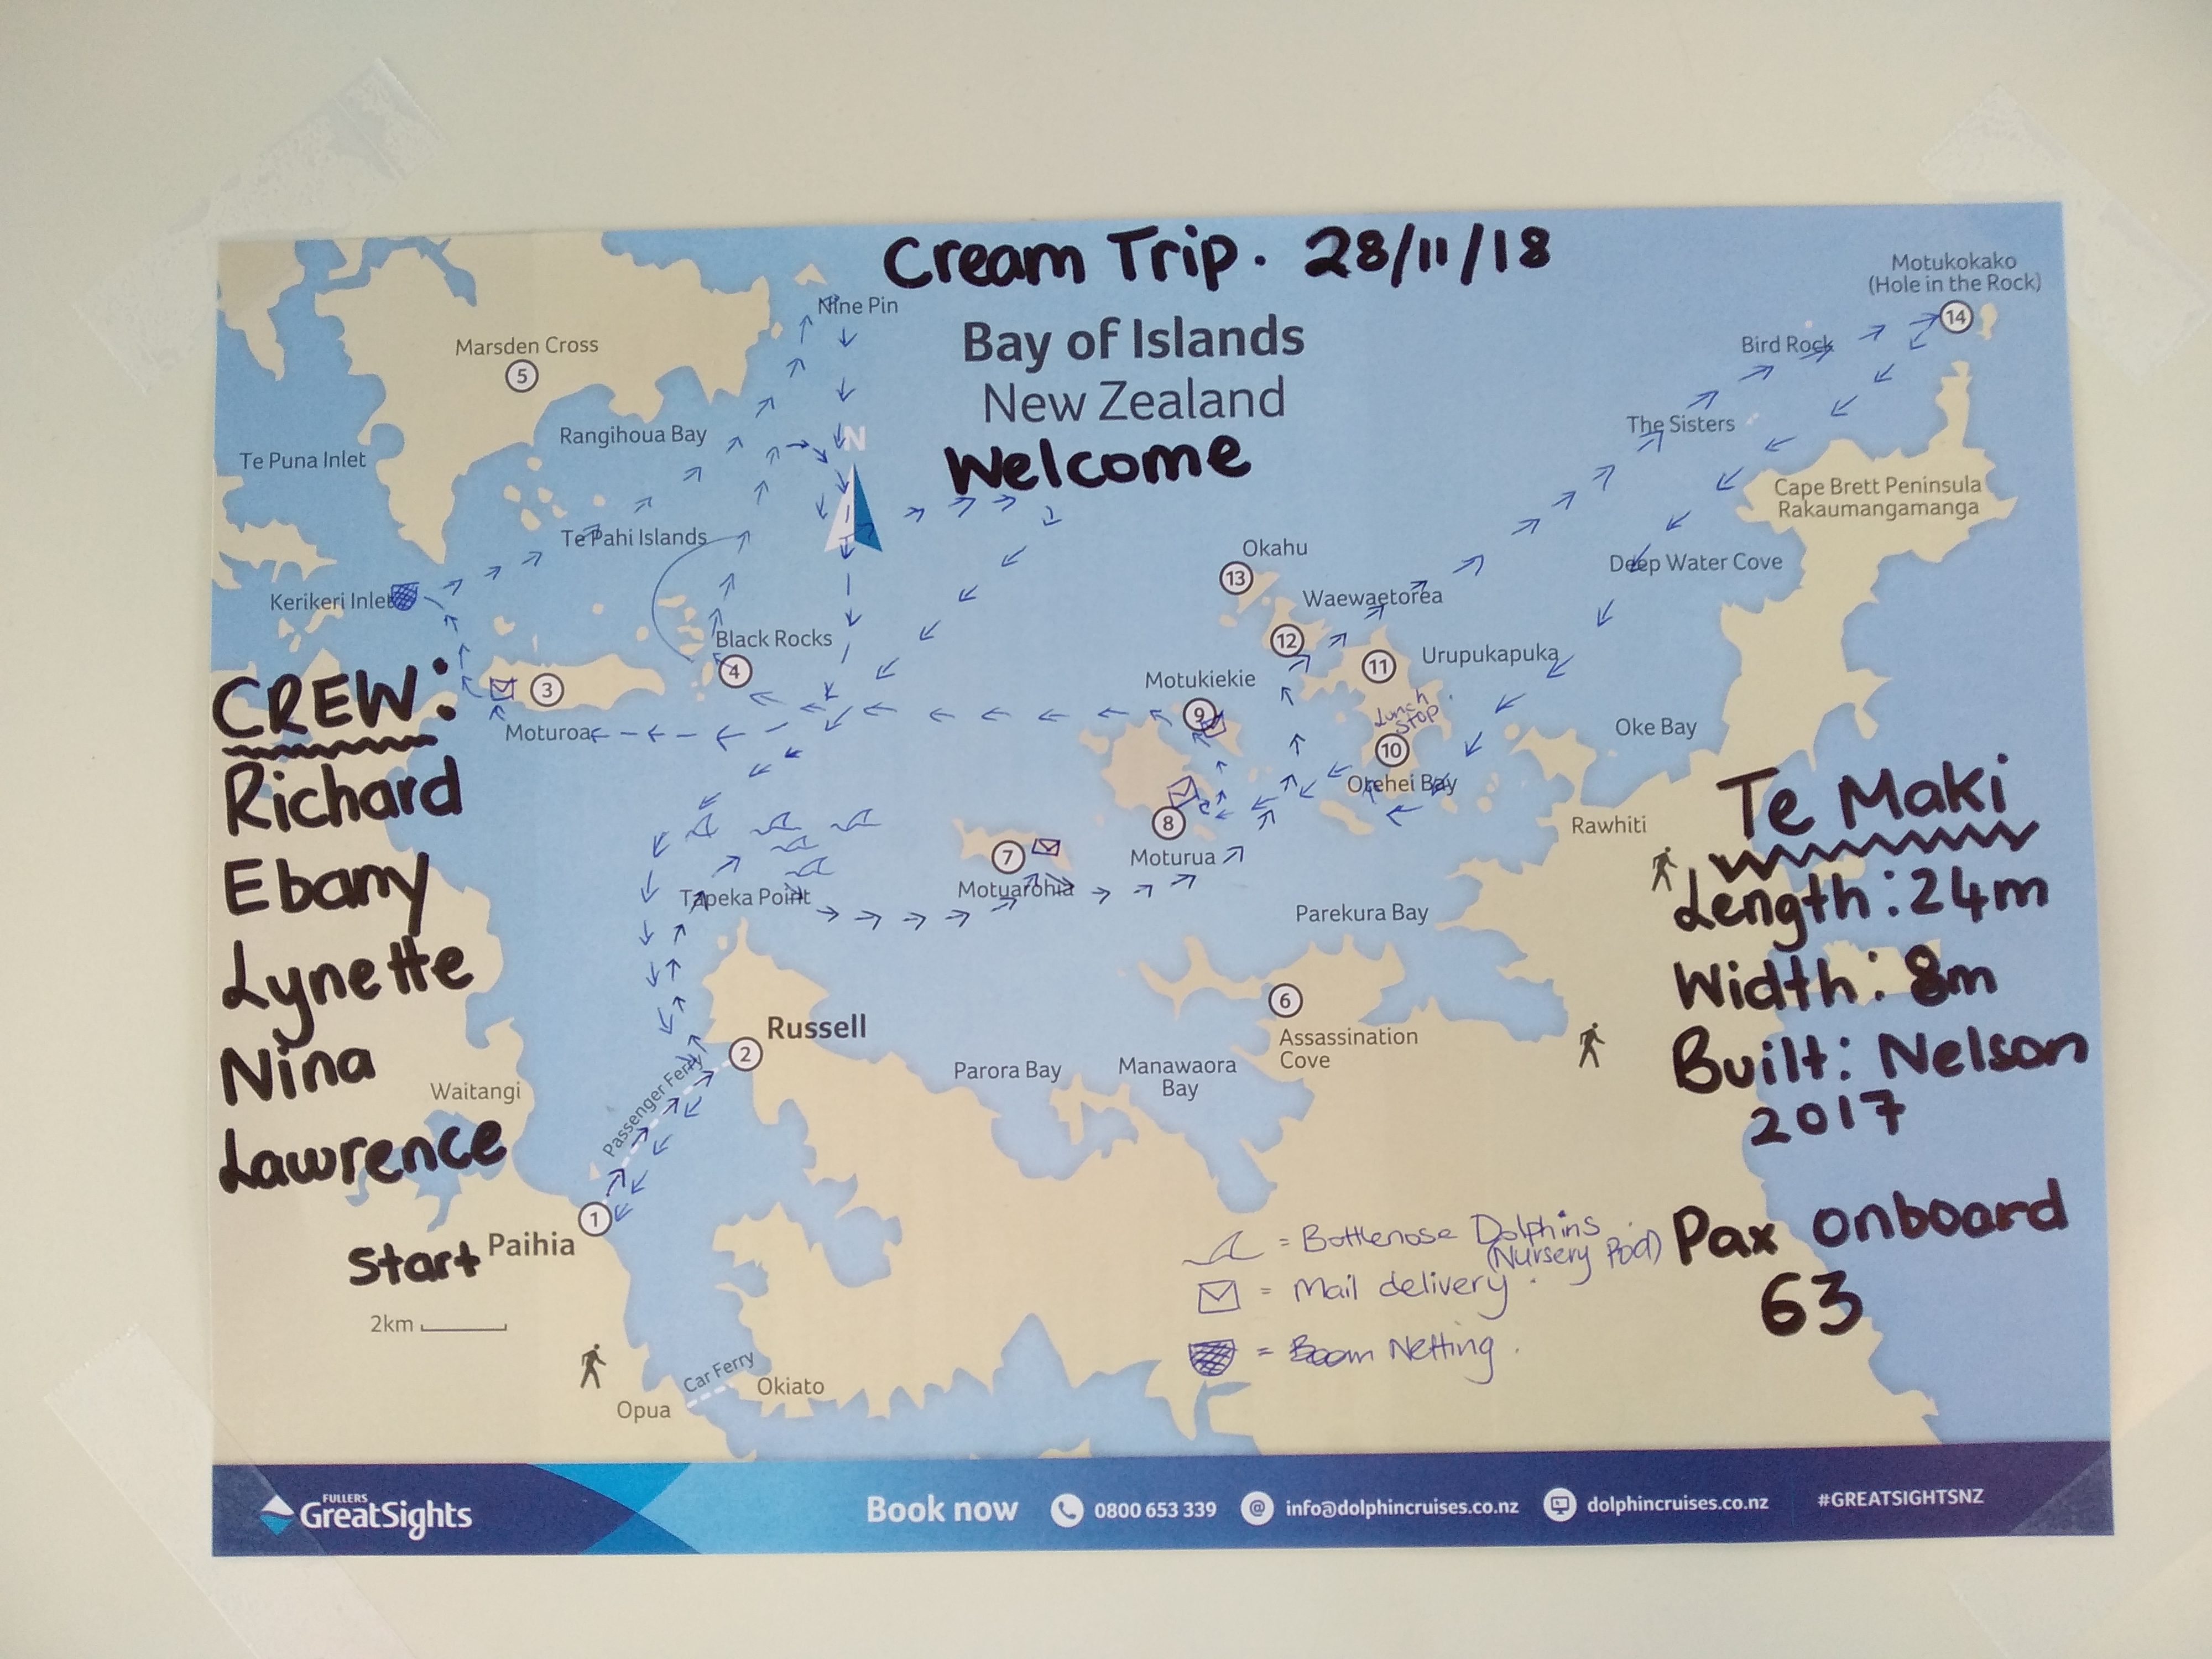 Cream Trip. 28/11/18
Bay of Islands
New Zealand
Welcome
N
Nine Pin
Motukokako
(Hole in the Rock)
14
Bird Rock
The Sisters
Marsden Cross
5
Rangihoua Bay
Te Puna Inlet
Te Pahi Islands
Kerikeri Inlet
Cape Brett Peninsula
Rakaumangamanga
Deep Water Cove
Okahu
13
Waewaetorea
12
11
Urupukapuka
Black Rocks
4
3
Moturoa
Motukiekie
9
Lunch
Stop
10
Otehei Bay
Oke Bay
Rawhiti
8
Moturua
7
Motuarohia
Tapeka Point
Parekura Bay
6
Assassination
Cove
Russell
2
Parora Bay
Manawaora
Bay
Waitangi
Passenger Ferry
1
Start Paihia
2km
Car Ferry
Okiato
Opua
CREW:
Richard
Ebany
Lynette
Nina
Lawrence
Te Maki
Length: 24m
Width: 8m
Built: Nelson
2017
Pax onboard
63
= Bottlenose Dolphins
(Nursery Pod)
= Mail delivery.
= Boom Netting.
FULLERS
GreatSights
Book now 0800 653 339 info@dolphincruises.co.nz dolphincruises.co.nz #GREATSIGHTSNZ